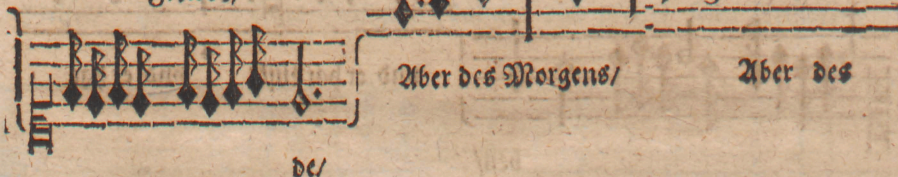 Aber des Morgens/ Aber des
de/